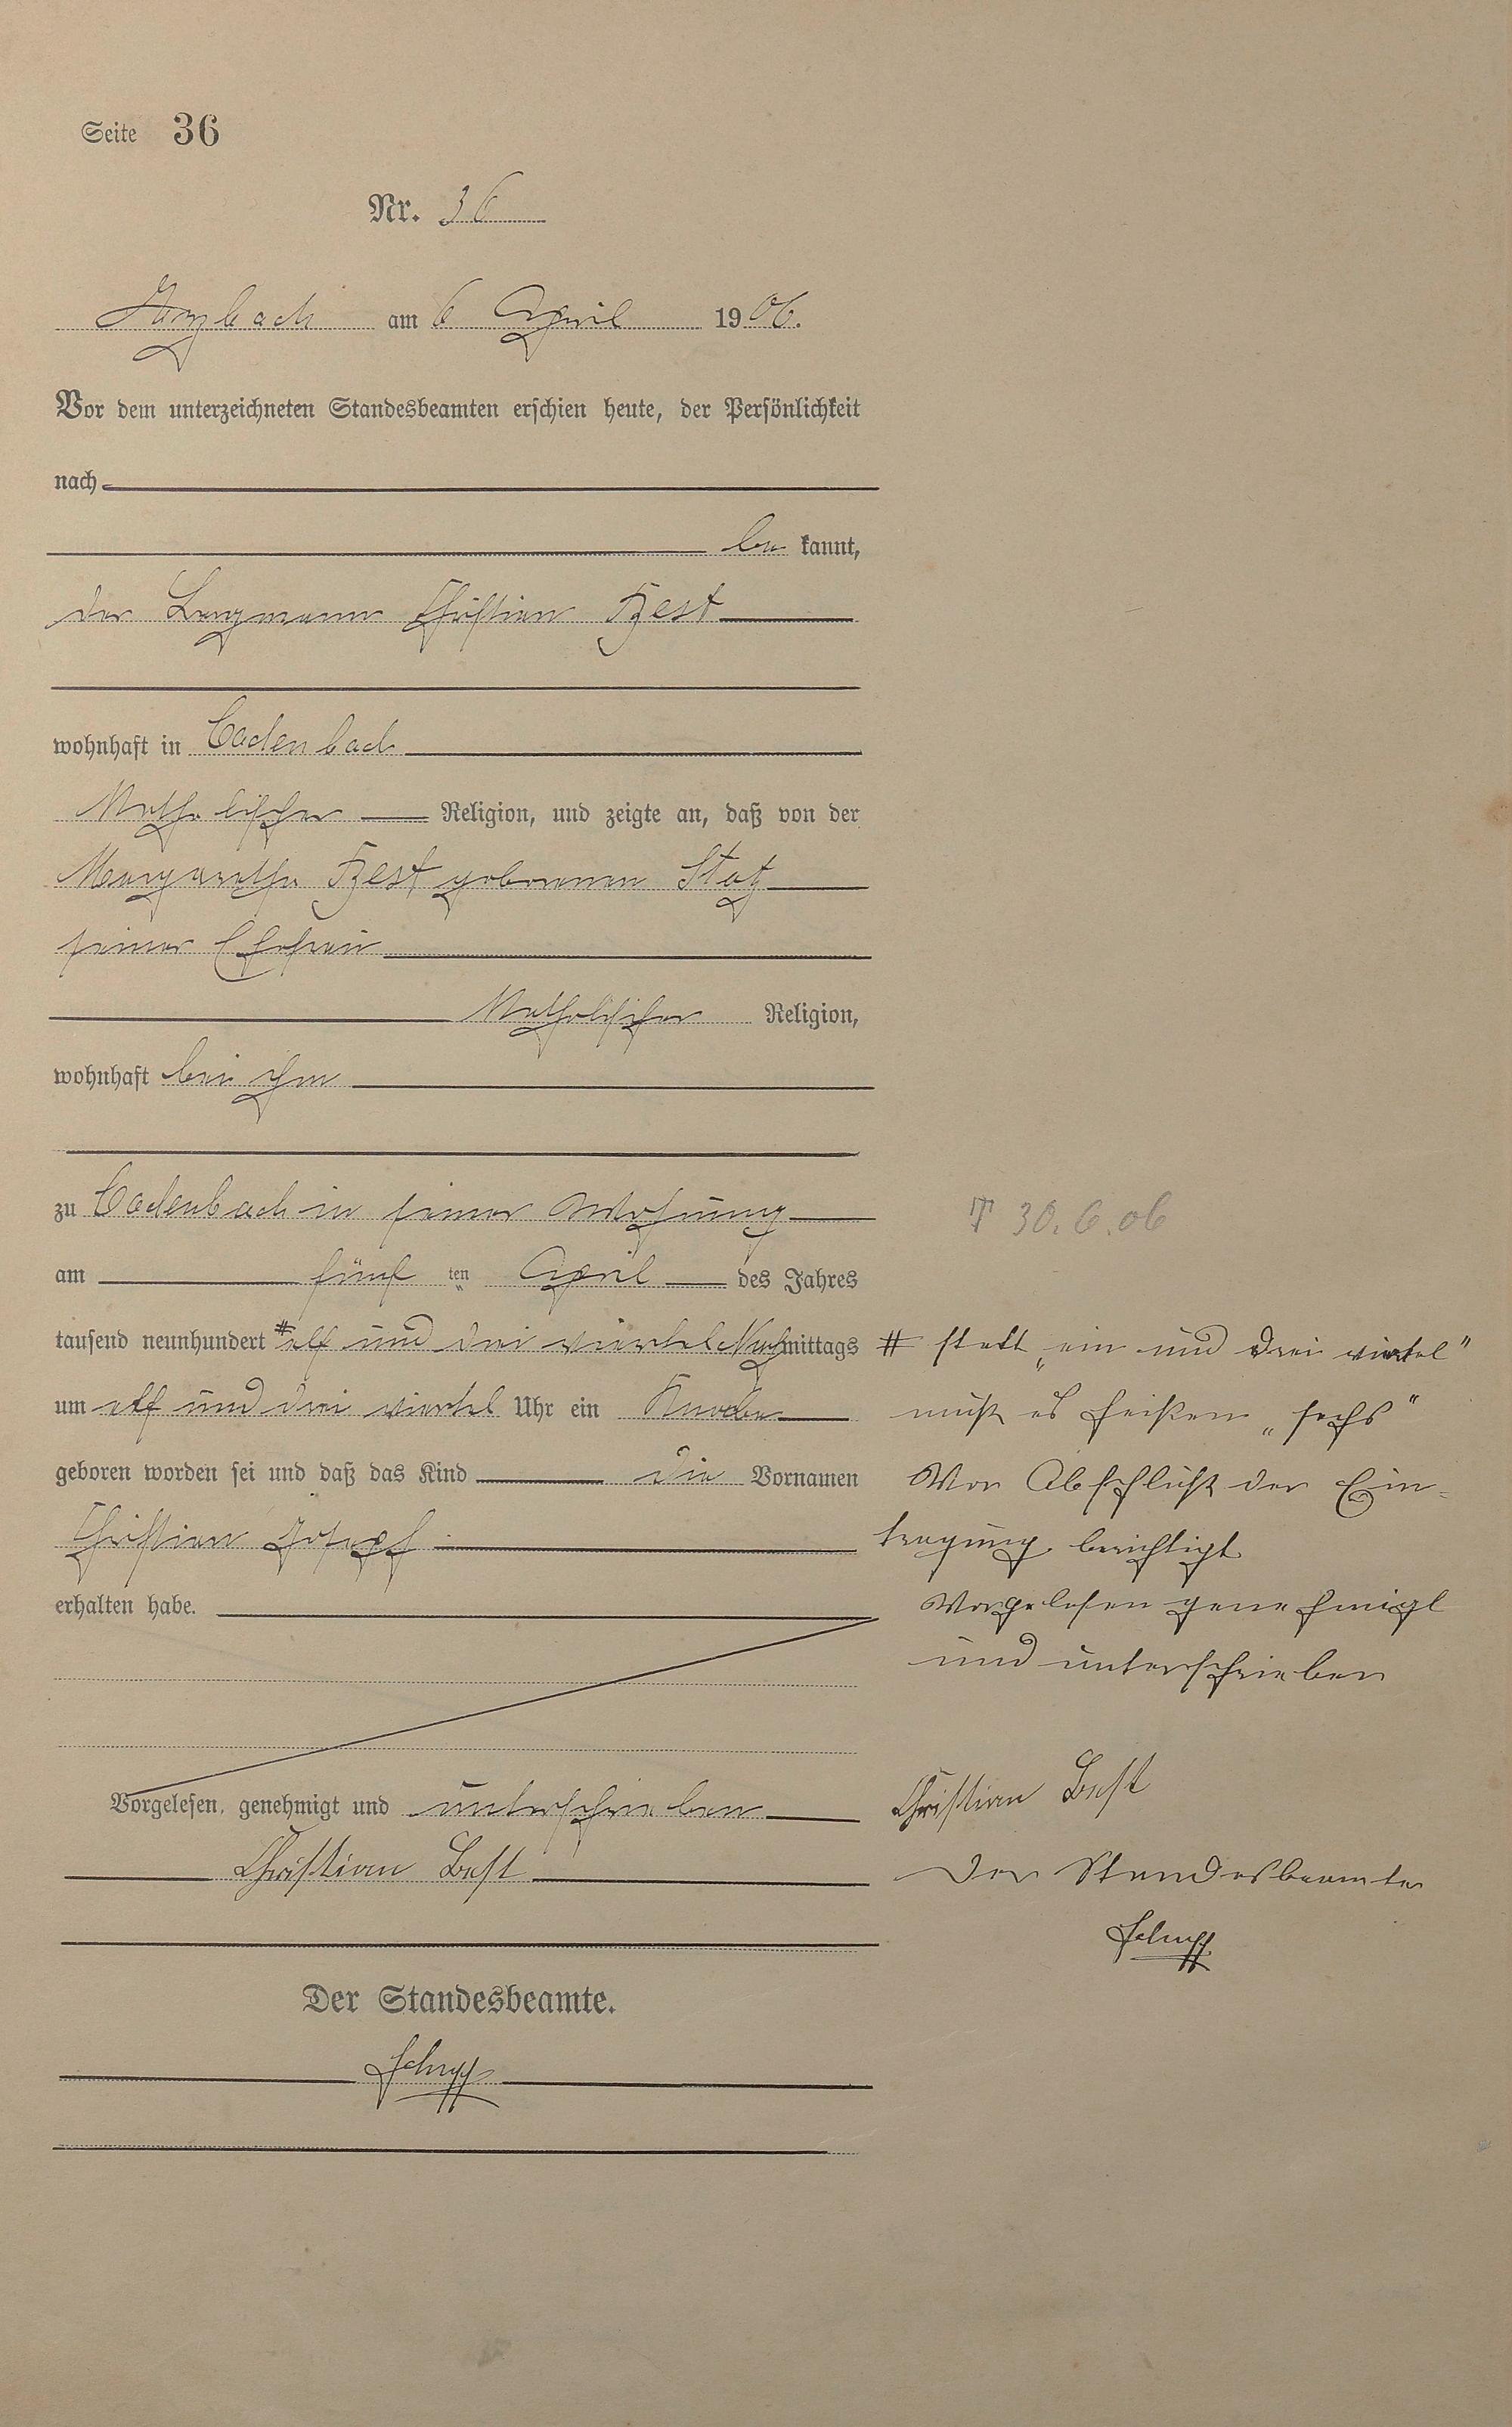 Seite 36
Nr. 36
am 6 April 1906.
Vor dem unterzeichneten Standesbeamten erschien heute, der Persönlichkeit
nach
be kannt,
der Bergmann Christian Best
wohnhaft in Cadenbach
Katholischer Religion, und zeigte an, daß von der
Margaretha Best geborenen Statz
seiner Ehefrau
Katholischer Religion,
wohnhaft bei ihm
zu Cadenbach in seiner Wohnung
am fünf ten April des Jahres
tausend neunhundert # elf und drei viertel Nachmittags
um elf und drei viertel Uhr ein Knabe
geboren worden sei und daß das Kind die Vornamen
Christian Josepf
erhalten habe.
Vorgelesen, genehmigt und unterschrieben
Christian Best
Der Standesbeamte.
† 30.6.06
# statt „ein und drei viertel"
muß es heißen „sechs"
Vor Abschluß der Ein-
tragung berichtigt
Vorgelesen genehmigt
und unterschrieben
Christian Best
Der Standesbeamte